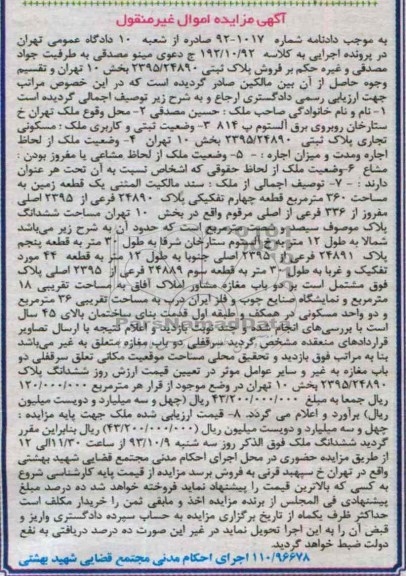 آگهی مزایده اموال غیرمنقول
به موجب دادنامه شماره ۱۰۱۷-۹۲ صادره از شعبه ۱۰ دادگاه عمومی تهران
در پرونده اجرایی به کلاسه ۱۹۳/۱۰/۹۲ ج دعوی مینو مصدقی به طرفیت جواد
مصدقی و غیره حکم بر فروش پلاک ثبتی ۲۳۹۵/۲۴۸۹۰ بخش ۱۰ تهران و تقسیم
وجوه حاصل از آن بین مالکین صادر گردیده است که در این خصوص مراتب
جهت ارزیابی رسمی دادگستری ارجاع و به شرح زیر توصیف اجمالی گردیده است
۱- نام و نام خانوادگی صاحب ملک : حسین مصدقی ۲- محل وقوع ملک تهران خ
ستارخان روبروی برق آلستوم پ ۸۱۴ ۳- وضعیت ثبتی و کاربری ملک : مسکونی
تجاری پلاک ثبتی ۲۳۹۵/۲۴۸۹۰ بخش ۱۰ تهران ۴- وضعیت ملک از لحاظ
اجاره ومدت و میزان اجاره : - ۵- وضعیت ملک از لحاظ مشاعی یا مفروز بودن :
مشاع ۶-وضعیت ملک از لحاظ حقوقی که اشخاص نسبت به آن تحت هر عنوان
دارند : - ۷- توصیف اجمالی از ملک : سند مالکیت المثنی یک قطعه زمین به
مساحت ۳۶۰ مترمربع قطعه چهارم تفکیکی پلاک ۲۴۸۹۰ فرعی از ۲۳۹۵ اصلی
مفروز از ۳۳۶ فرعی از اصلی مرقوم واقع در بخش ۱۰ تهران مساحت ششدانگ
پلاک موصوف سیصد و شصت مترمربع است که حدود آن به شرح زیر می‌باشد
شمالا به طول ۱۲ متر به خ آلستوم ستارخان شرقا به طول ۳۰ متر به قطعه پنجم
پلاک ۲۴۸۹۱ فرعی از ۲۳۹۵ اصلی جنوبا به طول ۱۲ متر به قطعه ۴۴ مورد
تفکیک و غربا به طول ۳۰ متر به قطعه سوم ۲۴۸۸۹ فرعی از ۲۳۹۵ اصلی پلاک
فوق مشتمل است بر دو باب مغازه مشاور املاک آفاق به مساحت تقریبی ۱۸
مترمربع و نمایشگاه صنایع چوب و فلز ایران درب به مساحت تقریبی ۳۶ مترمربع
و دو واحد مسکونی در همکف و طبقه اول قدمت بنای ساختمان بالای ۴۵ سال
است با بررسی‌های انجام شده اعلام نتیجه با ارسال تصاویر
قراردادهای منعقده مشخص گردید سرقفلی دو باب مغازه متعلق به غیر می‌باشد
بنا به مراتب فوق بازدید و تحقیق محلی مساحت موقعیت مکانی تعلق سرقفلی دو
باب مغازه به غیر و سایر عوامل موثر در تعیین قیمت ارزش روز ششدانگ پلاک
۲۳۹۵/۲۴۸۹۰ بخش ۱۰ تهران در وضع موجود از قرار هر مترمربع ۱۲۰/۰۰۰/۰۰۰
ریال جمعا به مبلغ ۴۳/۲۰۰/۰۰۰/۰۰۰ ریال (چهل و سه میلیارد و دویست میلیون
ریال) برآورد و اعلام می گردد. ۸- قیمت ارزیابی شده ملک جهت پایه مزایده :
چهل و سه میلیارد و دویست میلیون ریال (۴۳/۲۰۰/۰۰۰/۰۰۰) ریال بنابراین مقرر
گردید ششدانگ ملک فوق الذکر روز سه شنبه ۹۳/۱۰/۹ از ساعت ۱۱/۳۰الی ۱۲
از طریق مزایده حضوری در محل اجرای احکام مدنی مجتمع قضایی شهید بهشتی
واقع در تهران خ سپهبد قرنی به فروش برسد مزایده از قیمت پایه کارشناسی شروع
به کسی که بالاترین قیمت را پیشنهاد نماید فروخته خواهد شد ده درصد مبلغ
پیشنهادی فی المجلس از برنده مزایده اخذ و مابقی ثمن را خریدار مکلف است
حداکثر ظرف یکماه از تاریخ برگزاری مزایده به حساب سپرده دادگستری واریز و
قبض آن را به این اجرا تحویل نماید در غیر این صورت ده درصد دریافتی به نفع
دولت ضبط خواهد گردید.
۱۱۰/۹۶۶۷۸ اجرای احکام مدنی مجتمع قضایی شهید بهشتی